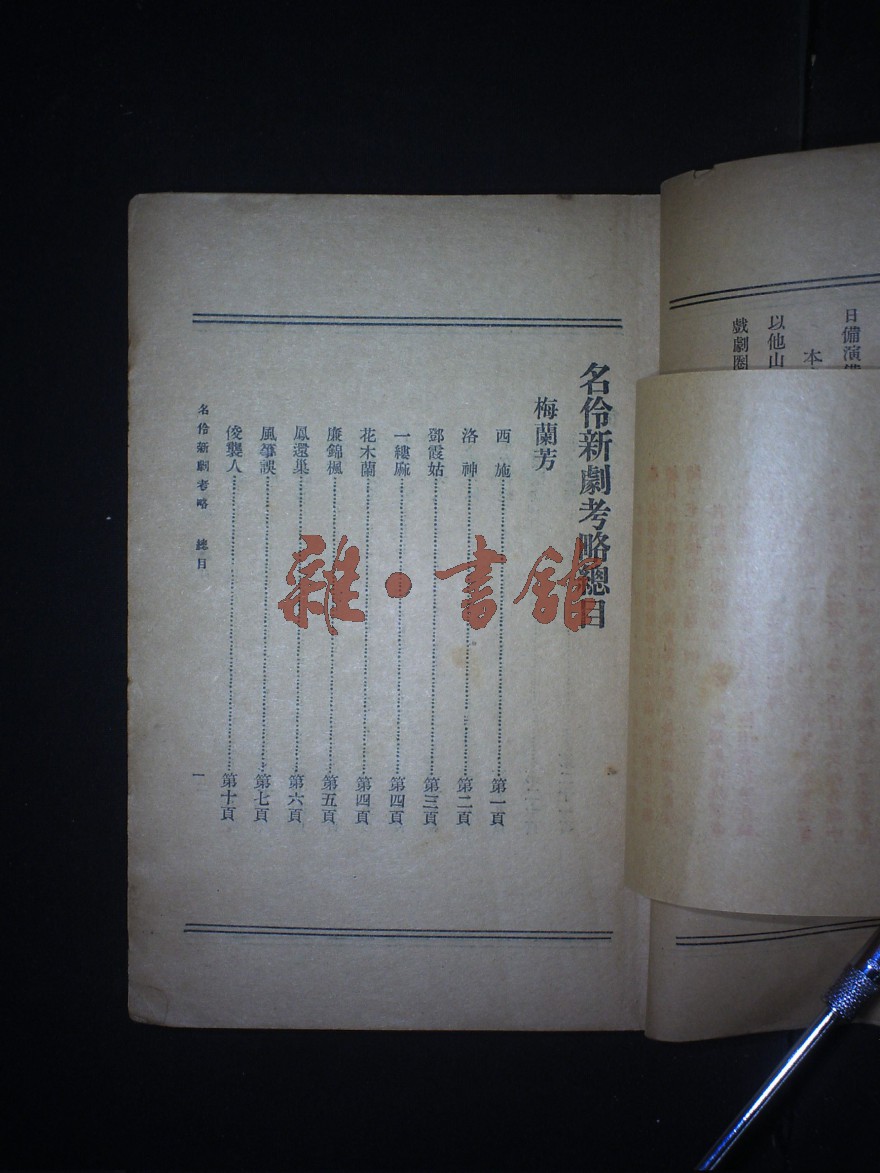 日備演
本
以他山
戲劇圈
名伶新劇考略總目
梅蘭芳
西施……第一頁
洛神……第二頁
鄧霞姑……第三頁
一縷麻……第四頁
花木蘭……第四頁
廉錦楓……第五頁
鳳還巢……第六頁
風箏誤……第七頁
俊襲人……第十頁
名伶新劇考略 總目
一
雜·書館